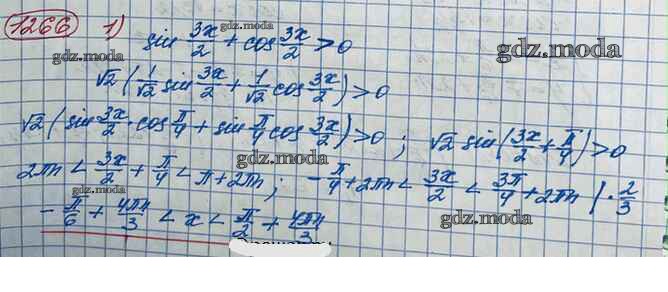 1266 1) sin 3x/2 + cos 3x/2 > 0
gdz.moda
√2 (1/√2 sin 3x/2 + 1/√2 cos 3x/2) > 0
gdz.moda
√2 (sin 3x/2 · cos π/4 + sin π/4 cos 3x/2) > 0 ; √2 sin (3x/2 + π/4) > 0
gdz.moda
gdz.moda
2πn < 3x/2 + π/4 < π + 2πn ; - π/4 + 2πn < 3x/2 < 3π/4 + 2πn | · 2/3
gdz.moda
- π/6 + 4πn/3 < x < π/2 + 4πn/3
gdz.moda